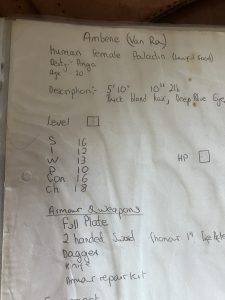 Ambene (Van Ra)
Human Female Paladin (Lawful Good)
Deity:- Anga
Age :- 20
Description:- 5' 10" 10st 2lb
thick blond hair, Deep Blue Eye
Level
S 16
I 12
W 13
D 10
Con 16
Ch 18
HP
Armour & Weapons
Full Plate
2 handed Sword
Dagger
Knife
Armour repair kit